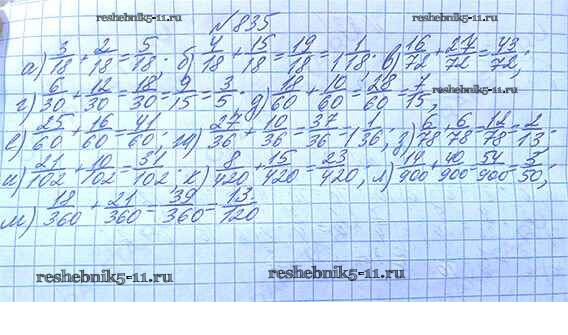 №835
reshebnik5-11.ru
а) 3/18 + 2/18 = 5/18. б) 4/18 + 15/18 = 19/18 = 1 1/18. в) 16/72 + 27/72 = 43/72;
г) 6/30 + 12/30 = 18/30 = 9/15 = 3/5. д) 18/60 + 10/60 = 28/60 = 7/15;
е) 25/60 + 16/60 = 41/60; ж) 27/36 + 10/36 = 37/36 = 1 1/36, з) 6/78 + 6/78 = 12/78 = 2/13.
и) 21/102 + 10/102 = 31/102. к) 8/420 + 15/420 = 23/420, л) 14/900 + 40/900 = 54/900 = 3/50,
м) 18/360 + 21/360 = 39/360 = 13/120
reshebnik5-11.ru
reshebnik5-11.ru